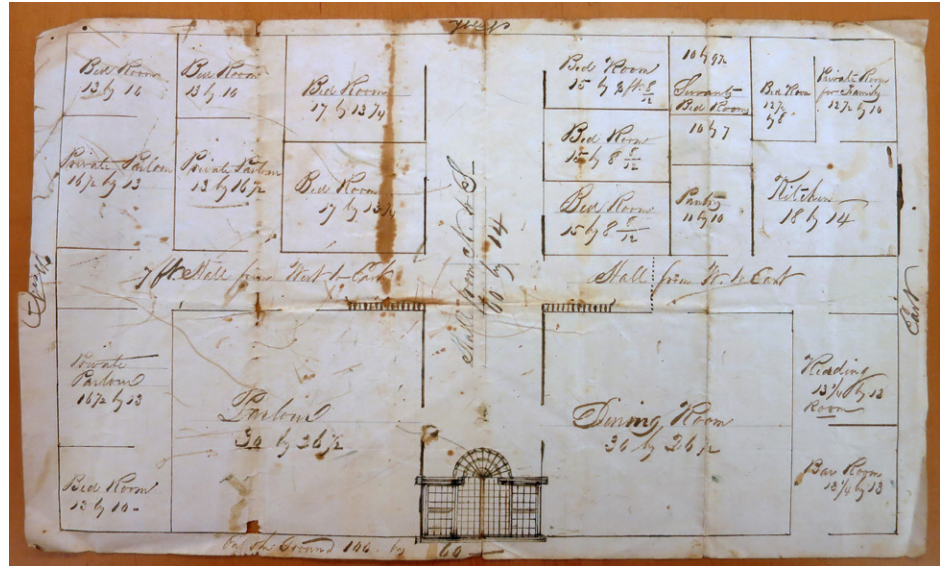 Bed Room
13 by 10
Bed Room
13 by 10
Bed Room
17 by 13 1/4
Bed Room
15 by 8 ft 8/12
10 by 9 1/2
Servants
Bed Rooms
10 by 7
Bed Room
12 1/2
by 8
Private Room
for Family
12 1/2 by 10
Private Parlour
16 1/2 by 13
Private Parlour
13 by 16 1/2
Bed Room
17 by 13 1/4
Bed Room
15 by 8 8/12
Bed Room
15 by 8 8/12
Pantry
11 by 10
Kitchen
18 by 14
Hall from N. to S.
60 by 14
7 ft. Hall from West to East
Hall from W. to East
East
Private
Parlour
16 1/2 by 13
Parlour
30 by 26 1/2
Dining Room
36 by 26 1/2
Reading
13 1/4 by 13
Room
Bed Room
13 by 10
Bar Room
13 1/4 by 13
on the Ground 106 by 60